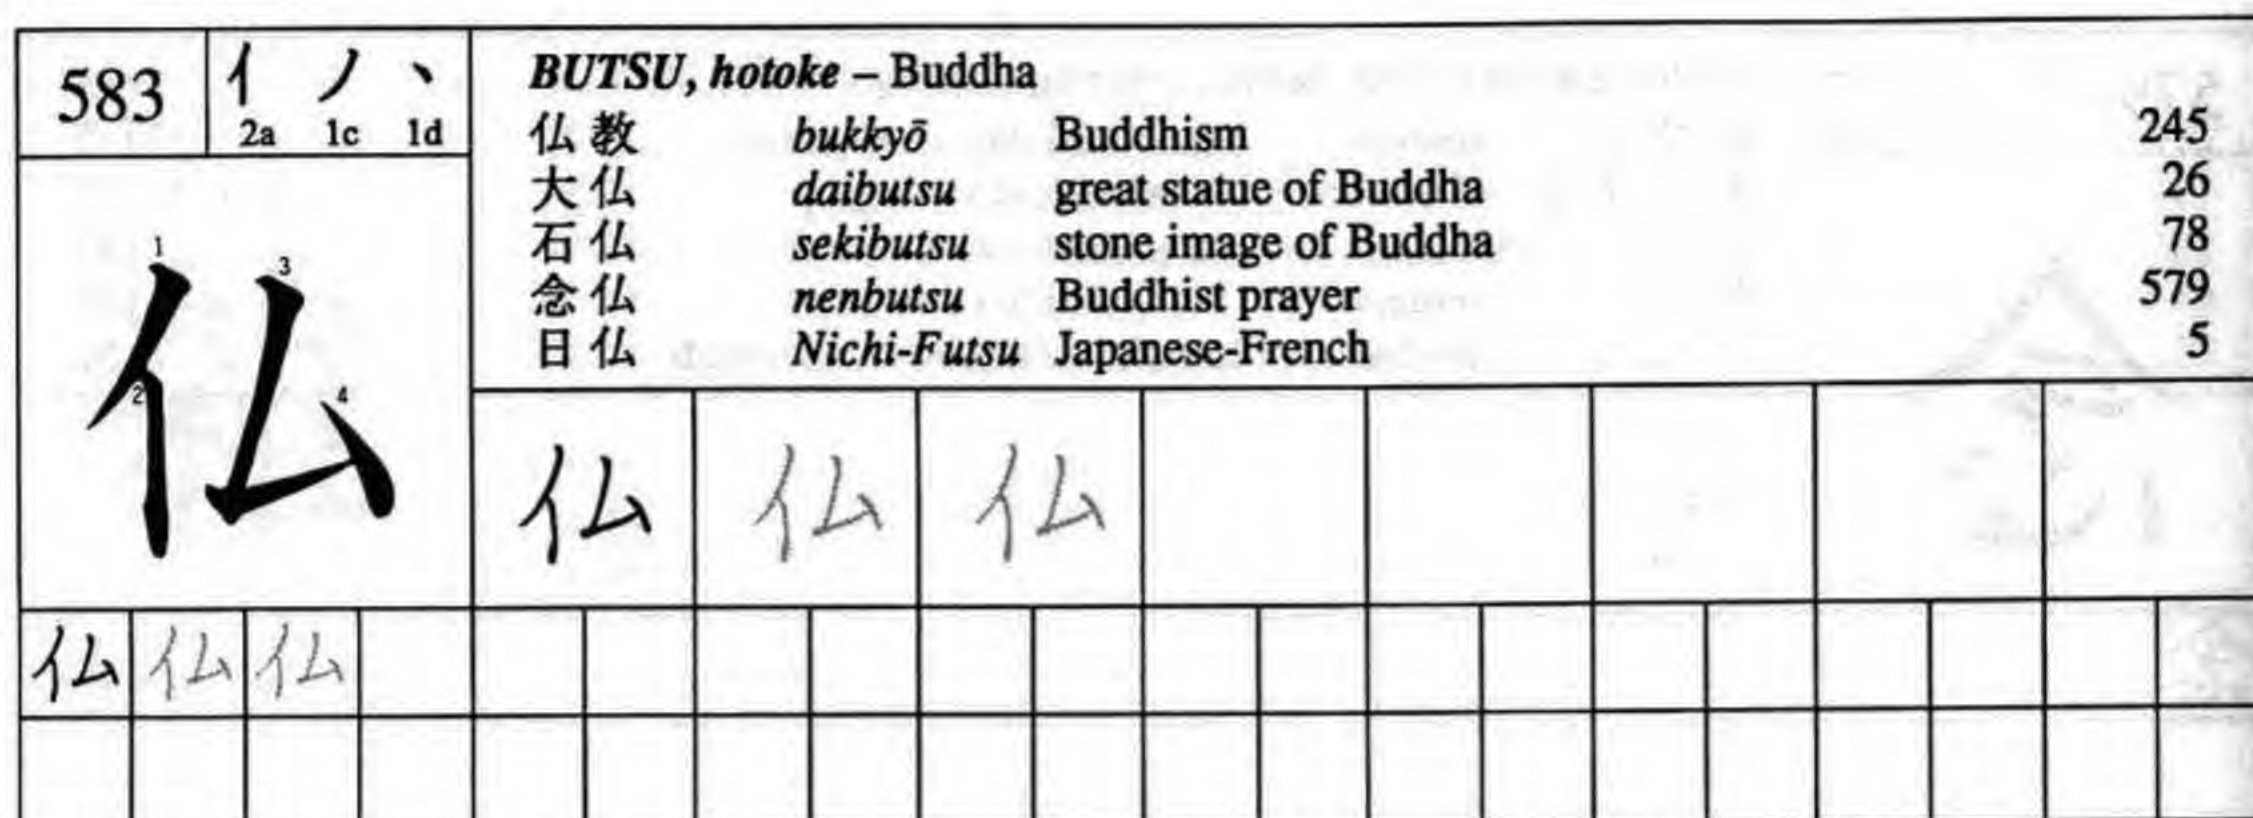 583
亻 ノ 丶
2a 1c 1d
BUTSU, hotoke – Buddha
仏教 bukkyō Buddhism 245
大仏 daibutsu great statue of Buddha 26
石仏 sekibutsu stone image of Buddha 78
念仏 nenbutsu Buddhist prayer 579
日仏 Nichi-Futsu Japanese-French 5
1 3
2 4
仏
仏 仏 仏
仏 仏 仏